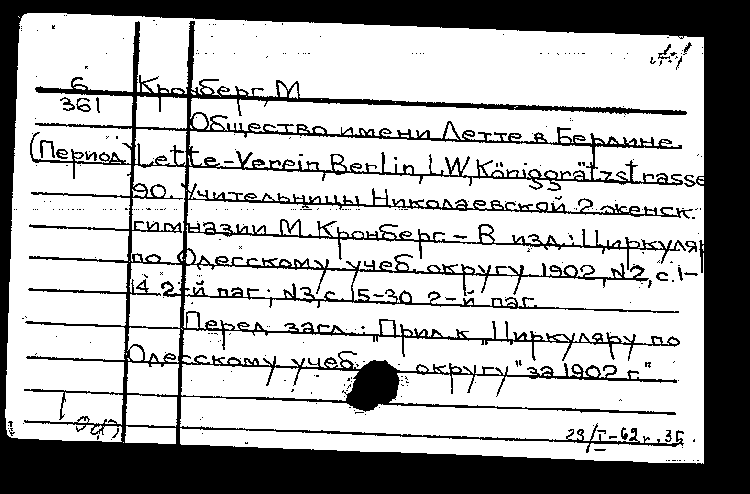 6
361
Кронберг, М
Общество имени Летте в Берлине.
(Период.) Lette-Verein, Berlin, I.W, Königgrätzstrasse
90. Учительницы Николаевской 2 женск.
гимназии М. Кронберг. – В изд.: Циркуляр
по Одесскому учеб. округу 1902, №2, с. 1-
14 2-й паг.; №3, с. 15-30 2-й паг.
Перед загл.: „Прил. к „Циркуляру по
Одесскому учеб. округу" за 1902 г."
1